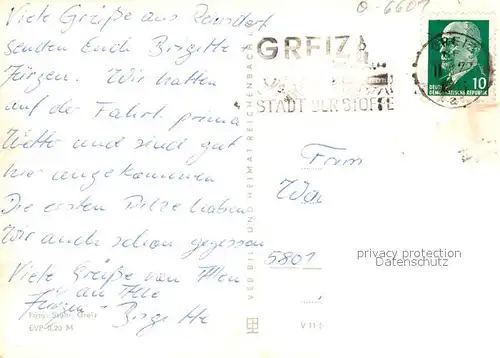 Viele Grüße aus Reinsdorf
senden Euch Birgitte
Jürgen. Wir hatten
auf der Fahrt prima
Wetter und sind gut
hier angekommen
Die ersten Pilze haben
wir auch schon gegessen
Viele Grüße von Allen
an Alle
Jürgen - Birgitte
Foto: Stöhr, Greiz
EVP 0,20 M
VEB BILD UND HEIMAT REICHENBACH
0-6601
GREIZ
STADT DER STOFFE
GREIZ
10
DEUTSCHE
DEMOKRATISCHE REPUBLIK
Fam
5801
V 11
privacy protection
Datenschutz